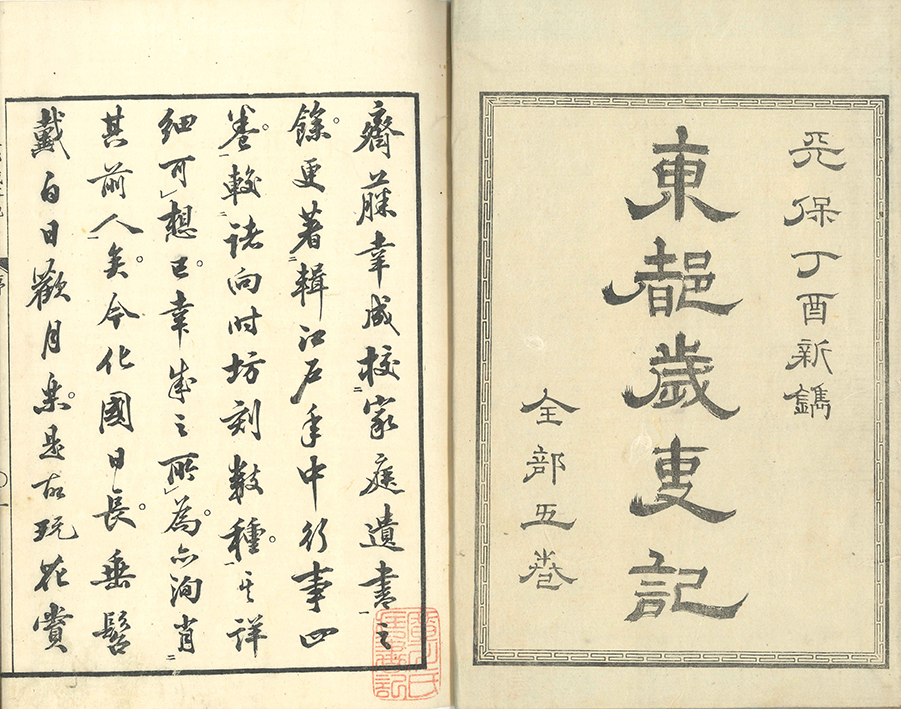 天保丁酉新鐫
東都歳叓記
全部五巻
齋藤幸成校家庭遺書之
餘。更著輯江戸年中行事四
巻。較諸向时坊刻数種。其詳
細可想已。幸成之所為。亦洵肖
其前人矣。今化國日長。垂髫
戴白日歡月楽。是故玩花賞
序